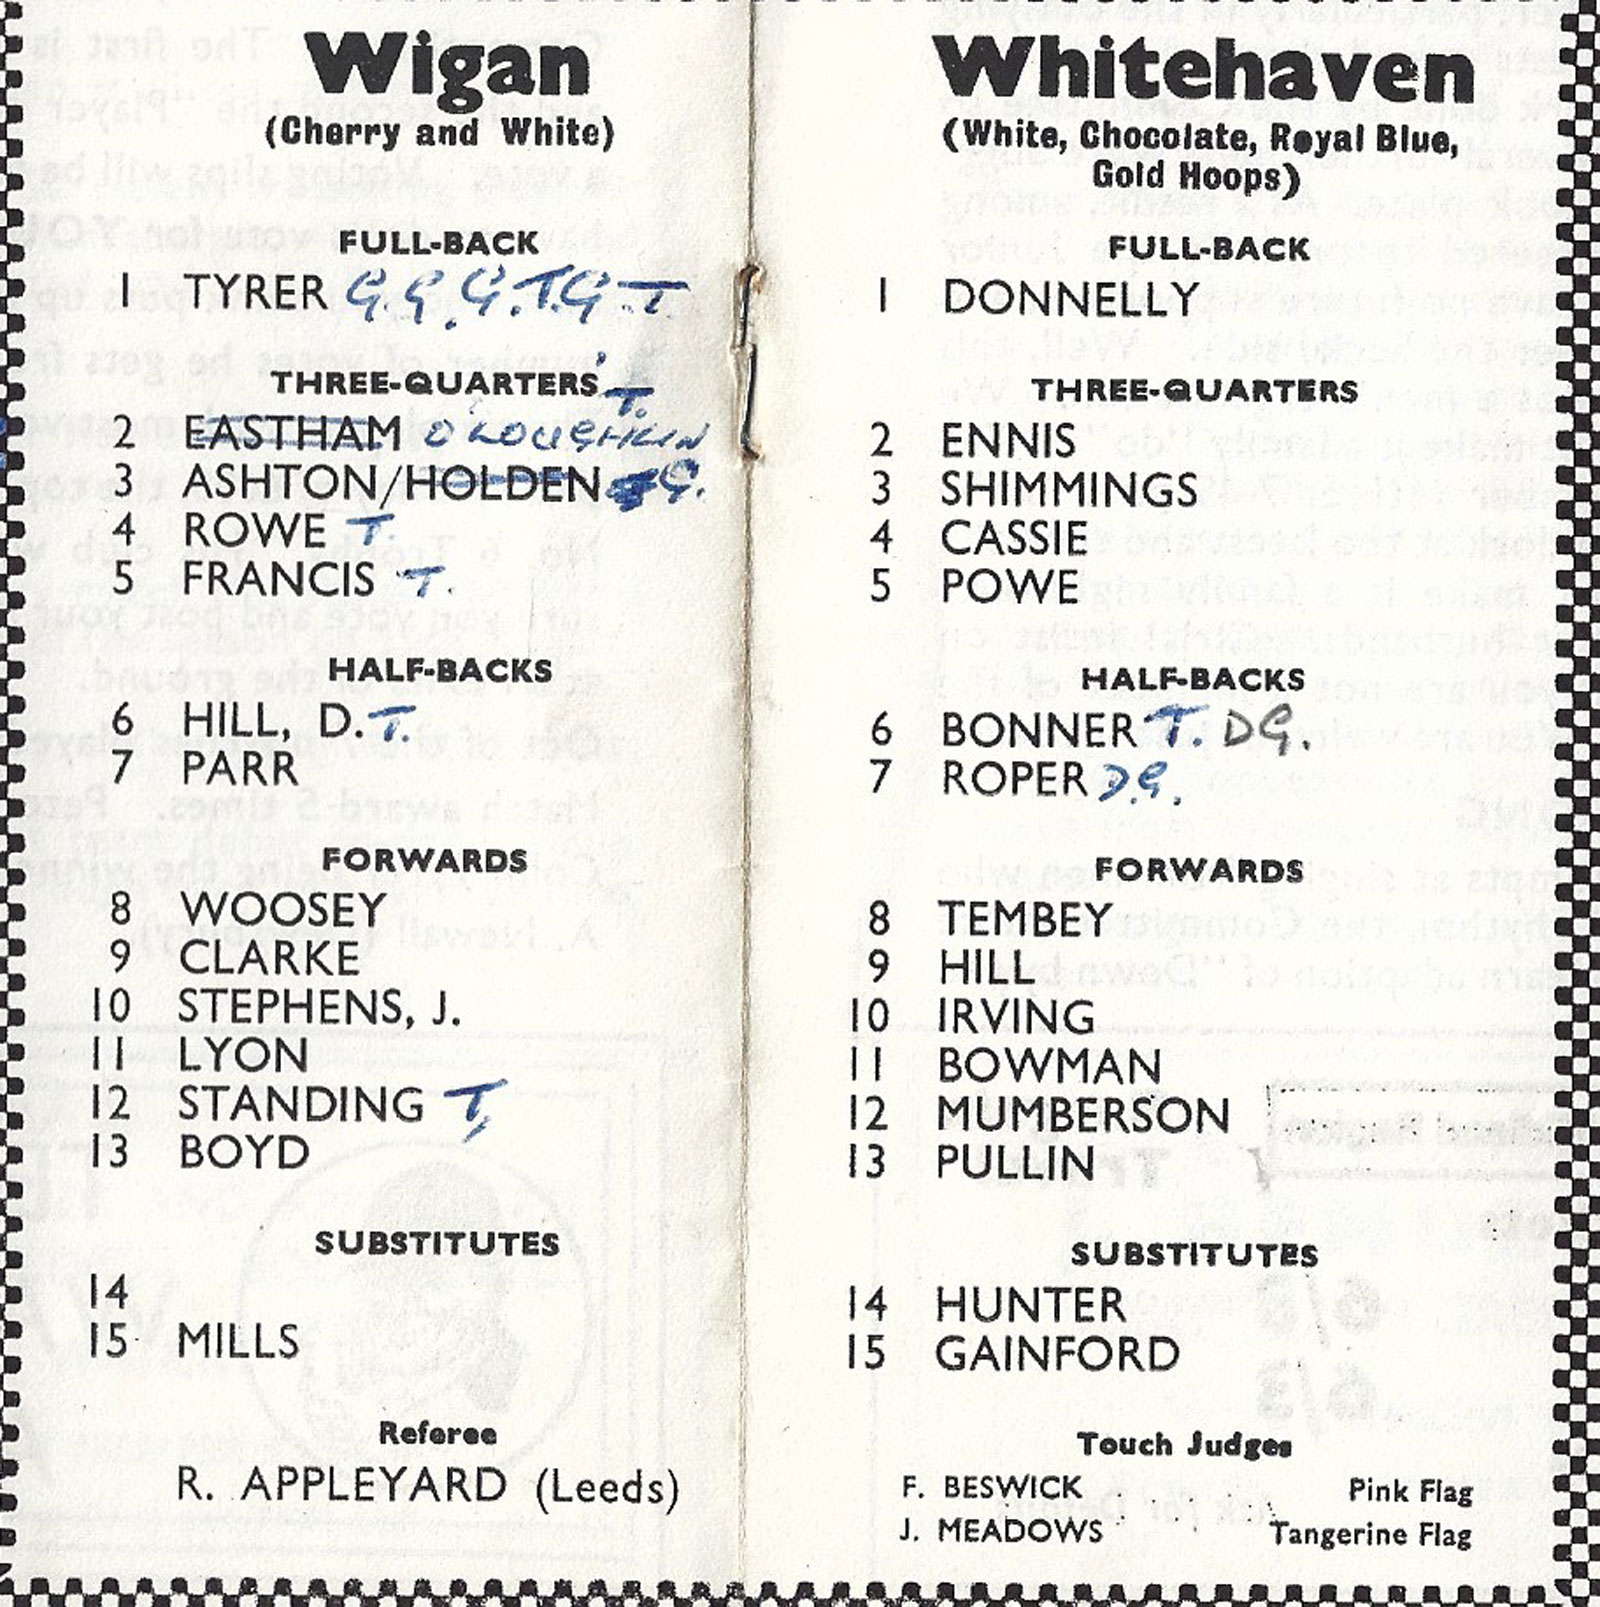 Wigan
(Cherry and White)
FULL-BACK
1 TYRER G.G.G.T.G T
THREE-QUARTERS
T.
2 EASTHAM O'LOUGHLIN
3 ASHTON/HOLDEN G.
4 ROWE T.
5 FRANCIS T.
HALF-BACKS
6 HILL, D. T.
7 PARR
FORWARDS
8 WOOSEY
9 CLARKE
10 STEPHENS, J.
11 LYON
12 STANDING T,
13 BOYD
SUBSTITUTES
14
15 MILLS
Referee
R. APPLEYARD (Leeds)
Whitehaven
(White, Chocolate, Royal Blue,
Gold Hoops)
FULL-BACK
1 DONNELLY
THREE-QUARTERS
2 ENNIS
3 SHIMMINGS
4 CASSIE
5 POWE
HALF-BACKS
6 BONNER T. DG.
7 ROPER D.G.
FORWARDS
8 TEMBEY
9 HILL
10 IRVING
11 BOWMAN
12 MUMBERSON
13 PULLIN
SUBSTITUTES
14 HUNTER
15 GAINFORD
Touch Judges
F. BESWICK Pink Flag
J. MEADOWS Tangerine Flag